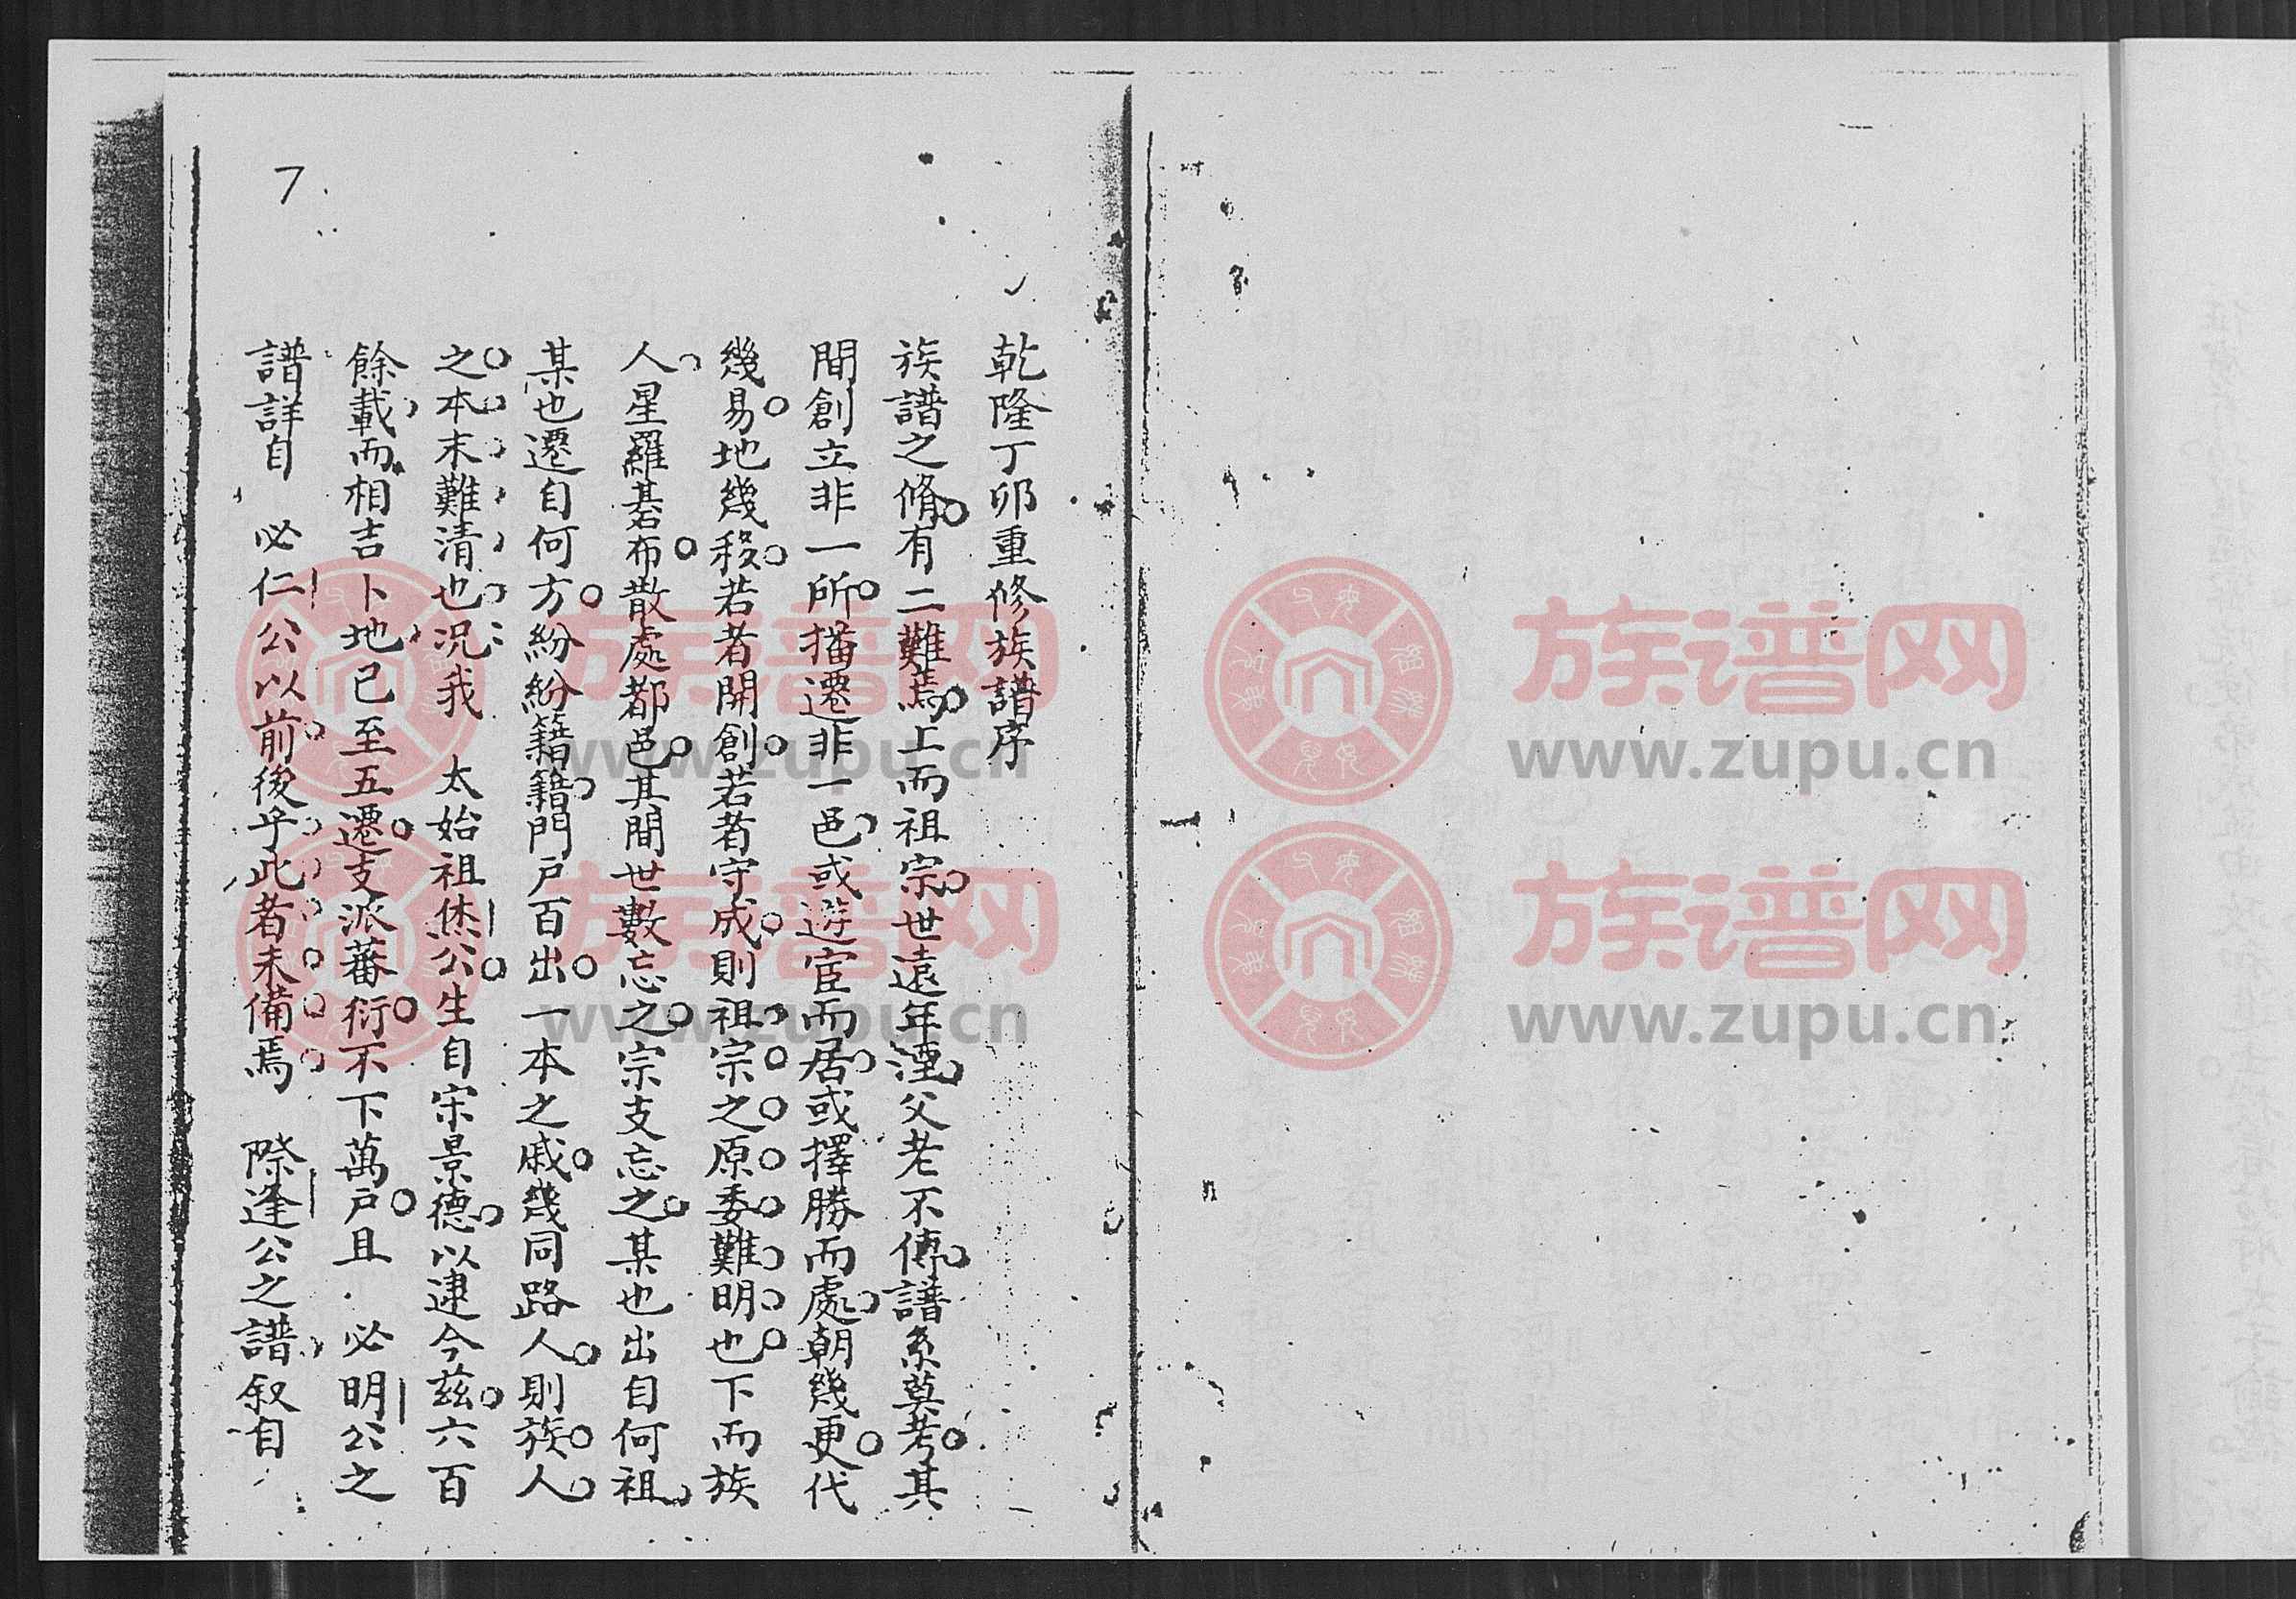 乾隆丁卯重修族譜序
族譜之脩有二難焉上而祖宗世遠年湮父老不傳譜系莫考其
間創立非一所播遷非一邑或遊宦而居或擇勝而處朝幾更代
幾易地幾移若者開創若者守成則祖宗之原委難明也下而族
人星羅碁布散處都邑其間世數忘之宗支忘之某也出自何祖
某也遷自何方紛紛籍籍門戶百出一本之戚幾同路人則族人
之本末難清也况我 太始祖烋公生自宋景德以逮今茲六百
餘載而相吉卜地已至五遷支派蕃衍不下萬戶且 必明公之
譜詳自 必仁公以前後乎此者未備焉 際逢公之譜叙自
7
族谱网
www.zupu.cn
族谱网
www.zupu.cn
族谱网
www.zupu.cn
族谱网
www.zupu.cn